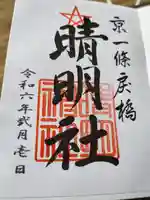 京一條戻橋
晴明社
令和六年弐月壱日